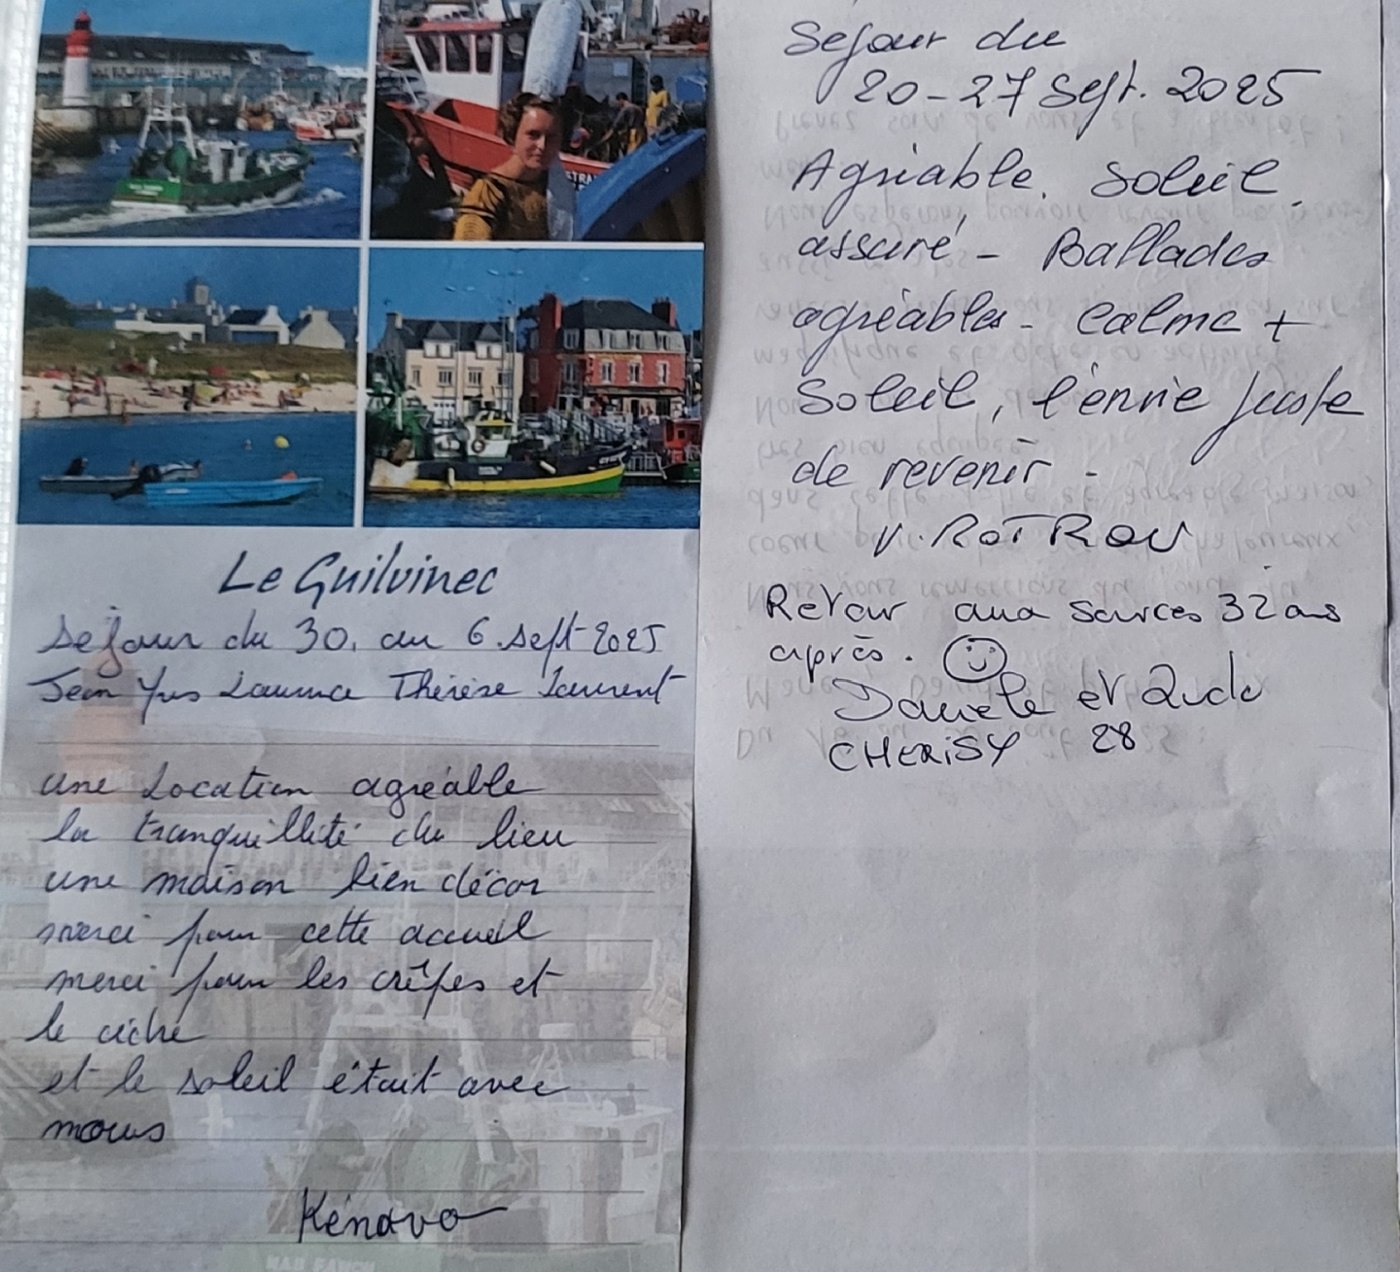 Le Guilvinec
Séjour du 30. au 6.sept-2025
Jean Yves Laurence Thérèse Laurent
une Location agréable
la tranquillité du lieu
une maison bien décor
merci pour cette accueil
merci pour les crêpes et
le cidre
et le soleil était avec
nous
Kénavo
Séjour du
20-27 Sept. 2025
Agréable. Soleil
assuré - Ballades
agréables - Calme +
Soleil, l'envie juste
de revenir -
V. ROTROU
Retour aux sources 32 ans
après.
Danièle et
CHERISY 28